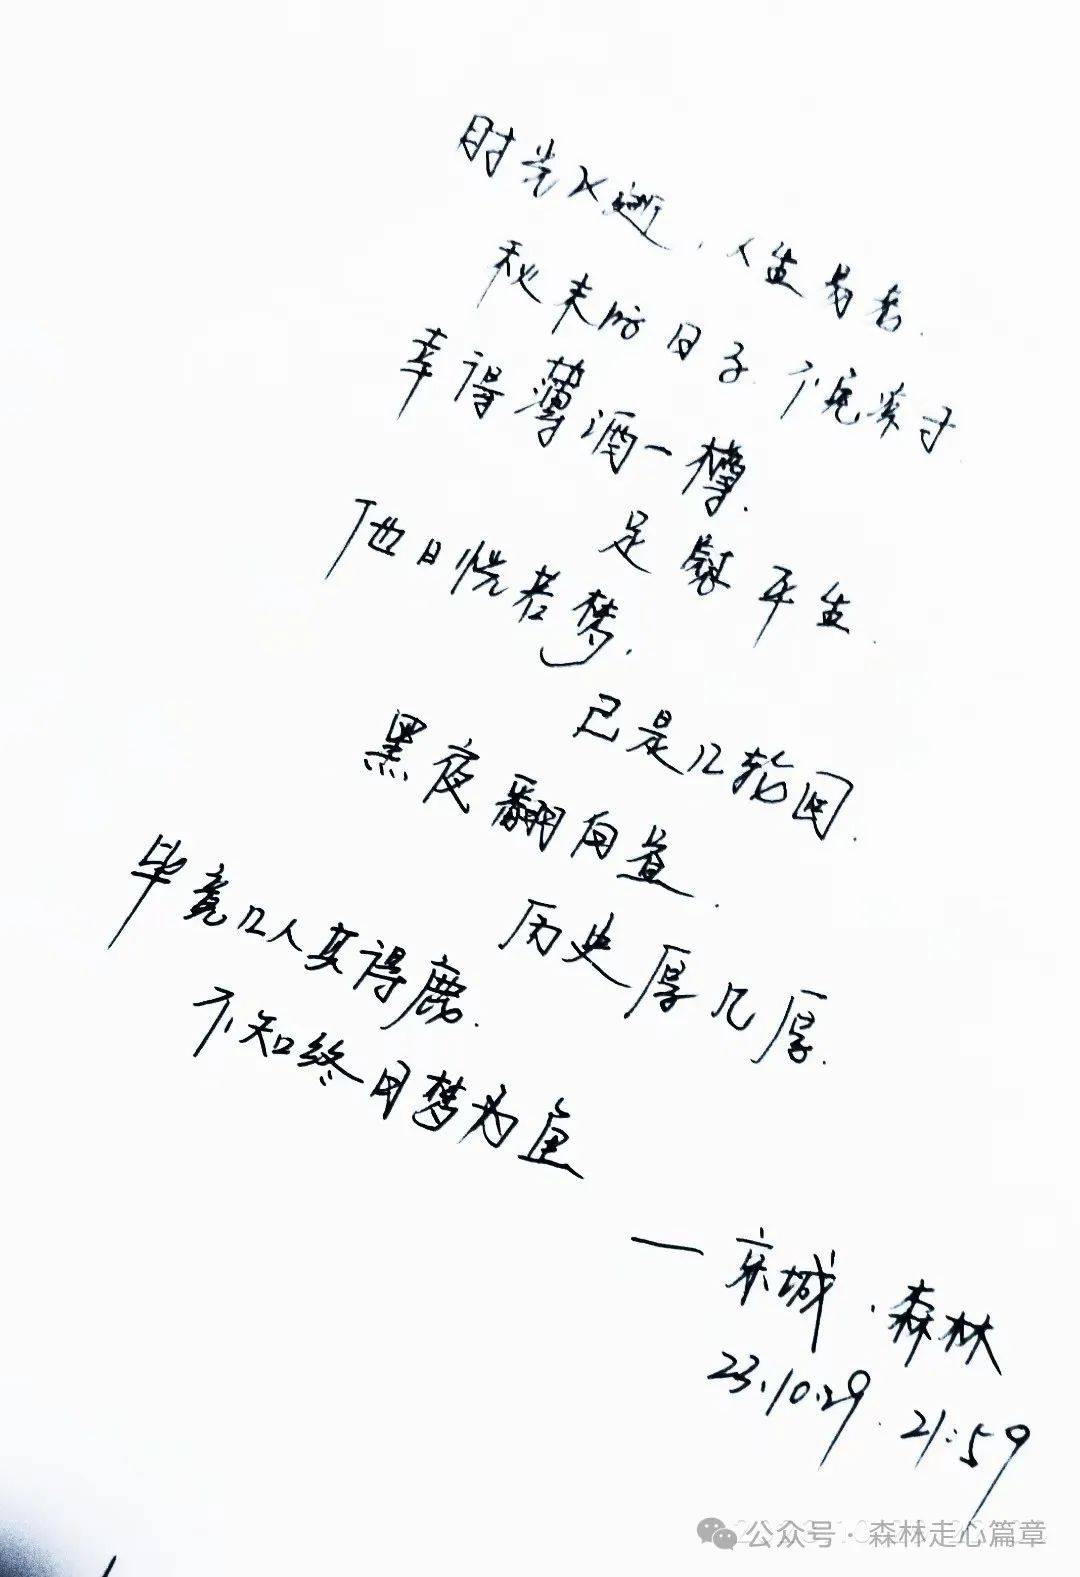 时光飞逝，人生易老.
秋来的日子
幸得薄酒一樽.
足慰平生.
日恍若梦.
已是几轮回.
黑夜翻向昼.
历史厚几厚.
毕竟几人真得鹿.
不知终日梦为鱼
—宋城·森林
23.10.29.21:59
公众号·森林走心篇章